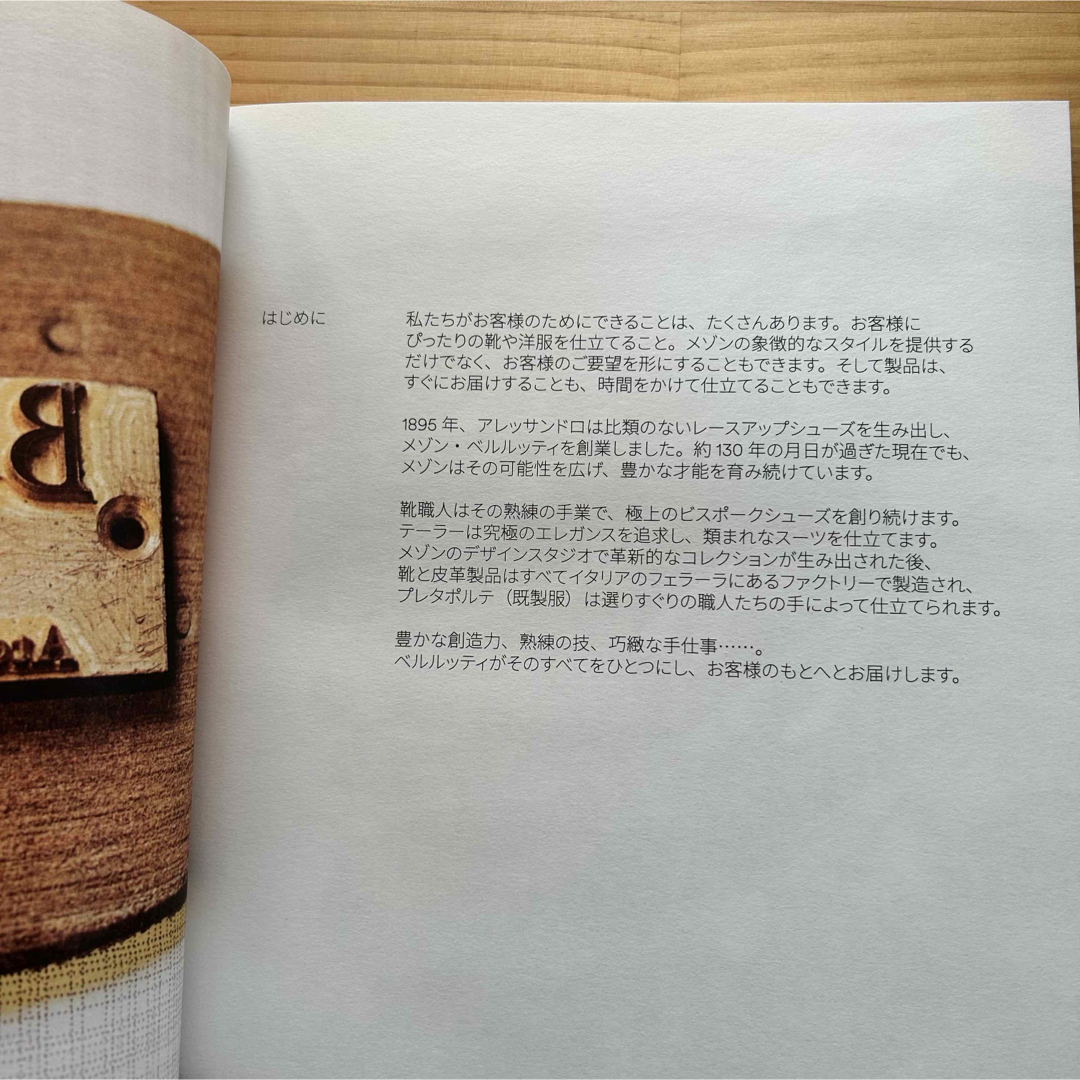 はじめに
私たちがお客様のためにできることは、たくさんあります。お客様に
ぴったりの靴や洋服を仕立てること。メゾンの象徴的なスタイルを提供する
だけでなく、お客様のご要望を形にすることもできます。そして製品は、
すぐにお届けすることも、時間をかけて仕立てることもできます。
1895 年、アレッサンドロは比類のないレースアップシューズを生み出し、
メゾン・ベルルッティを創業しました。約 130 年の月日が過ぎた現在でも、
メゾンはその可能性を広げ、豊かな才能を育み続けています。
靴職人はその熟練の手業で、極上のビスポークシューズを創り続けます。
テーラーは究極のエレガンスを追求し、類まれなスーツを仕立てます。
メゾンのデザインスタジオで革新的なコレクションが生み出された後、
靴と皮革製品はすべてイタリアのフェラーラにあるファクトリーで製造され、
プレタポルテ（既製服）は選りすぐりの職人たちの手によって仕立てられます。
豊かな創造力、熟練の技、巧緻な手仕事……。
ベルルッティがそのすべてをひとつにし、お客様のもとへとお届けします。